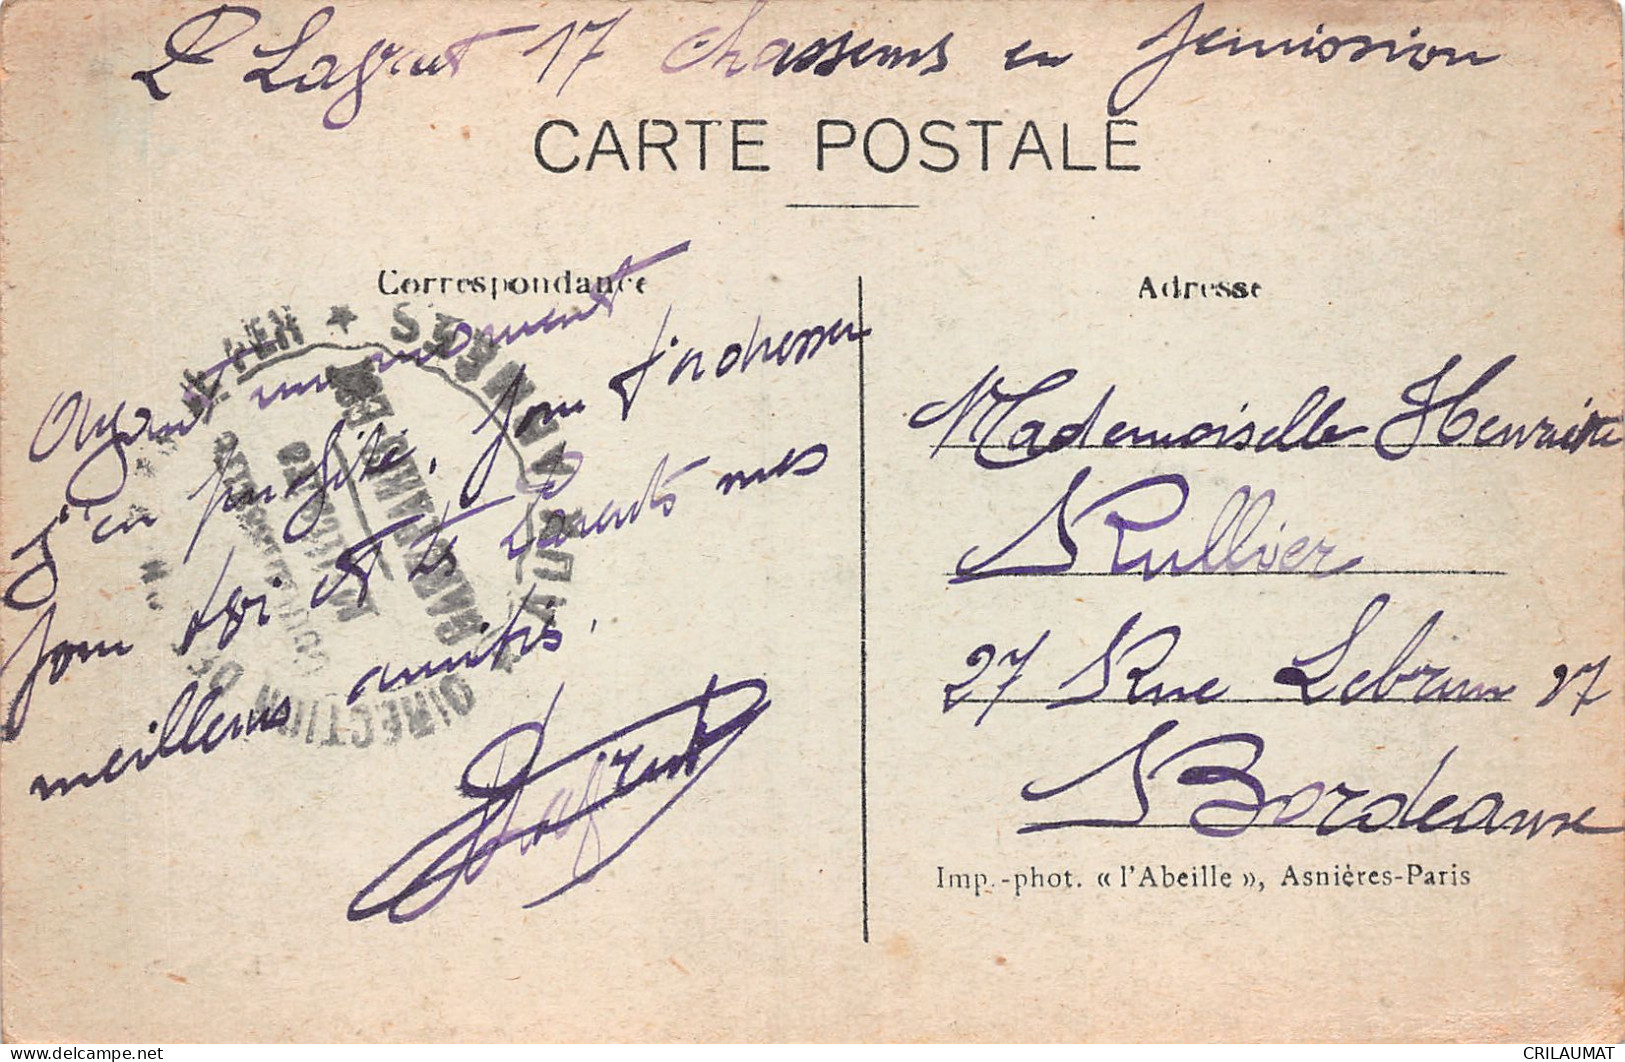 Lafrut 17 chasseurs en permission
CARTE POSTALE
Correspondance
Adresse
Ayant un moment
j'en profite, pour t'adresser
pour toi et tes parents mes
meilleures amitiés.
Lafrut
Mademoiselle Henriette
Rullier
27 Rue Lebrun 27
Bordeaux
Imp.-phot. « l'Abeille », Asnières-Paris
DIRECTION DE
CRILAUMAT